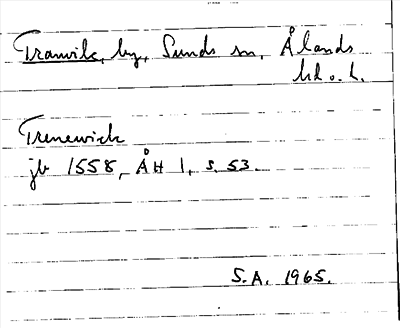 Tranvik, by, Sunds sn, Ålands
hd o. l.
Trenewick
jb 1558, ÅH 1, s. 53.
S.A. 1965.